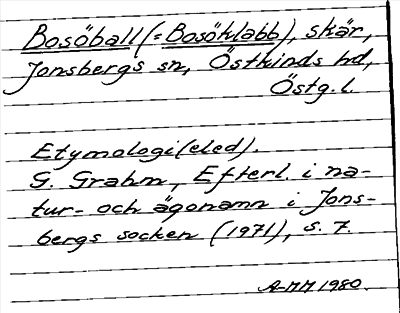 Bosöball (= Bosöklabb), skär,
Jonsbergs sn, Östkinds hd,
Östg. l.
Etymologi (eled).
G. Grahm, Efterl. i na-
tur- och ägonamn i Jons-
bergs socken (1971), s. 7.
A-MM 1980.